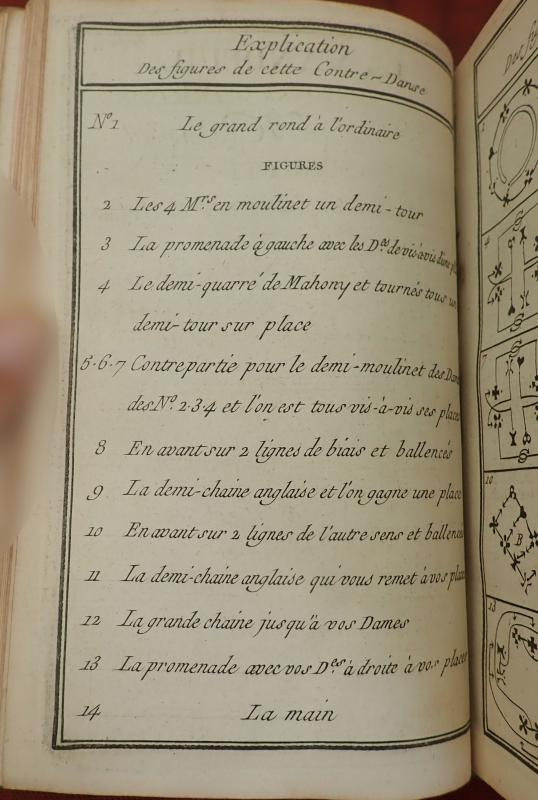 Explication
Des figures de cette Contre-Danse
N.º 1 Le grand rond à l'ordinaire
FIGURES
2 Les 4 M.rs en moulinet un demi-tour
3 La promenade à gauche avec les D.es de vis-à-vis d'une
4 Le demi-quarré de Mahony et tournés tous un
demi-tour sur place
5.6.7 Contrepartie pour le demi-moulinet des
des N.º 2.3.4 et l'on est tous vis-à-vis ses places
8 En avant sur 2 lignes de biais et ballencés
9 La demi-chaine anglaise et l'on gagne une place
10 En avant sur 2 lignes de l'autre sens et ballencés
11 La demi-chaine anglaise qui vous remet à vos
12 La grande chaine jusqu'à vos Dames
13 La promenade avec vos D.es à droite à vos places
14 La main
1
4
7
10
B
13